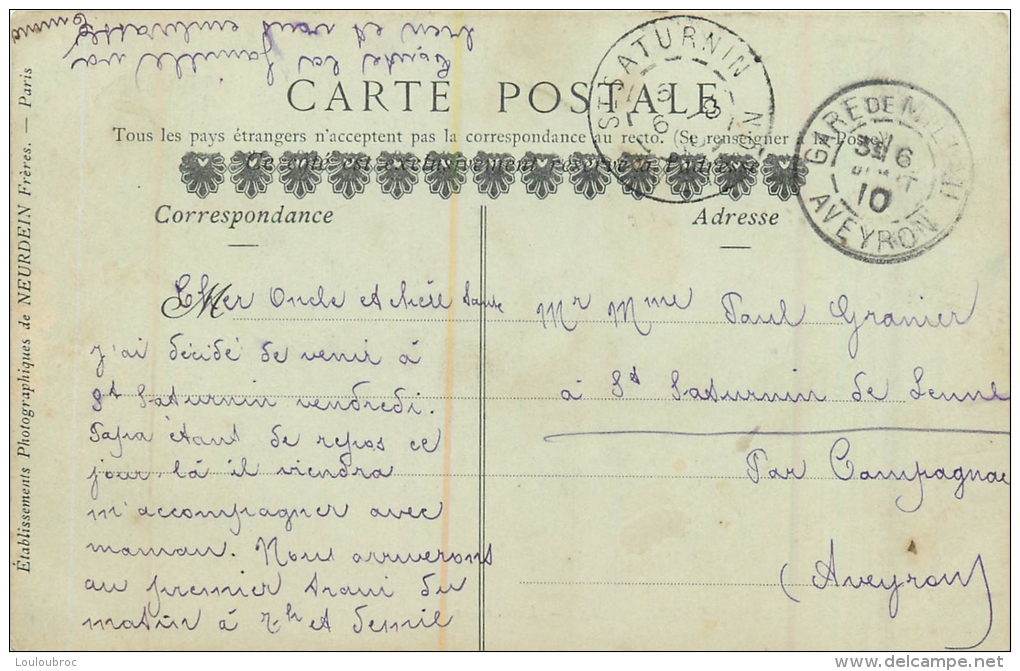 CARTE POSTALE
Tous les pays étrangers n'acceptent pas la correspondance au recto. (Se renseigner à la Poste)
Ce côté est exclusivement réservé à l'adresse
Correspondance
Adresse
Cher Oncle et chère tante
j'ai décidé de venir à
St Saturnin vendredi.
Papa étant de repos ce
jour là il viendra
m'accompagner avec
maman. Nous arriverons
au premier train du
matin à 7h et demie
toute la famille va
bien et vous embrasse
Emma
Mr Mme Paul Granier
à St Saturnin de Lenne
Par Campagnac
(Aveyron)
ST-SATURNIN
GARE DE
6
10
AVEYRON
Établissements Photographiques de NEURDEIN Frères. — Paris
Louloubroc
delcampe.net